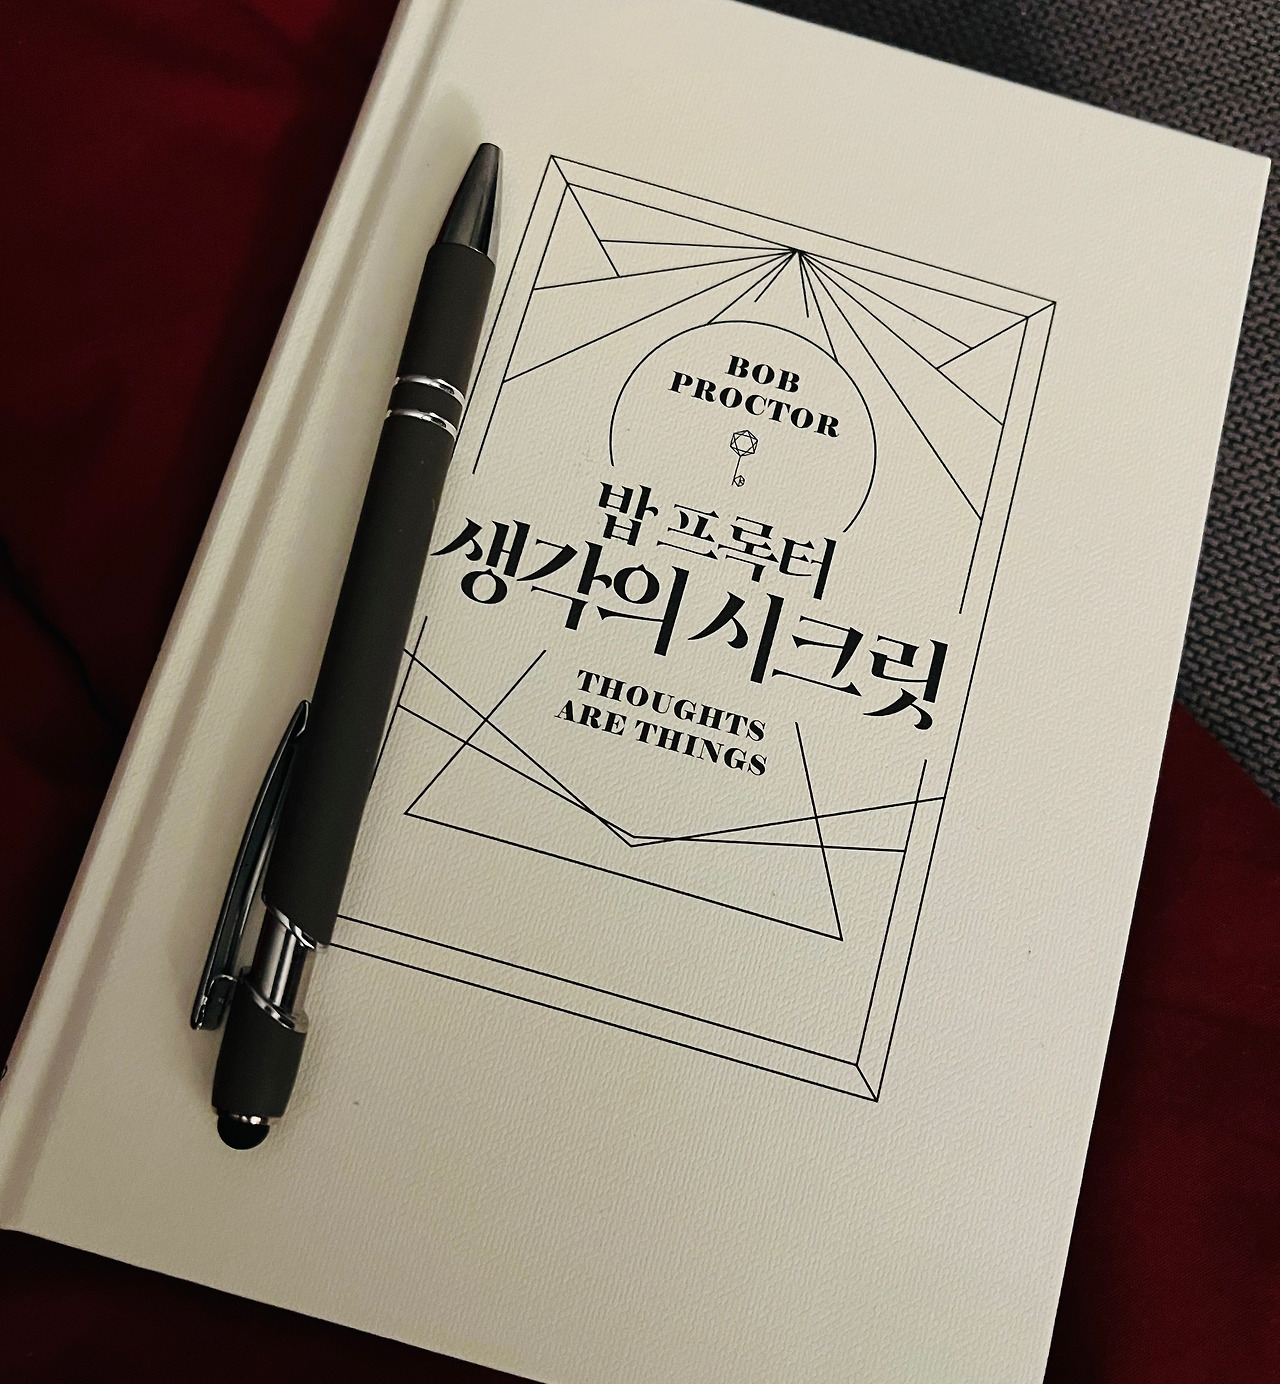 BOB
PROCTOR
밥 프록터
생각의 시크릿
THOUGHTS
ARE THINGS